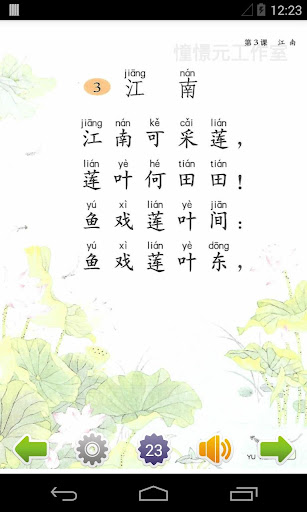 12:23
第3课 江南
憧憬元工作室
jiāng nán
3 江 南
jiāng nán kě cǎi lián
江南可采莲，
lián yè hé tián tián
莲叶何田田！
yú xì lián yè jiān
鱼戏莲叶间：
yú xì lián yè dōng
鱼戏莲叶东，
23
YU